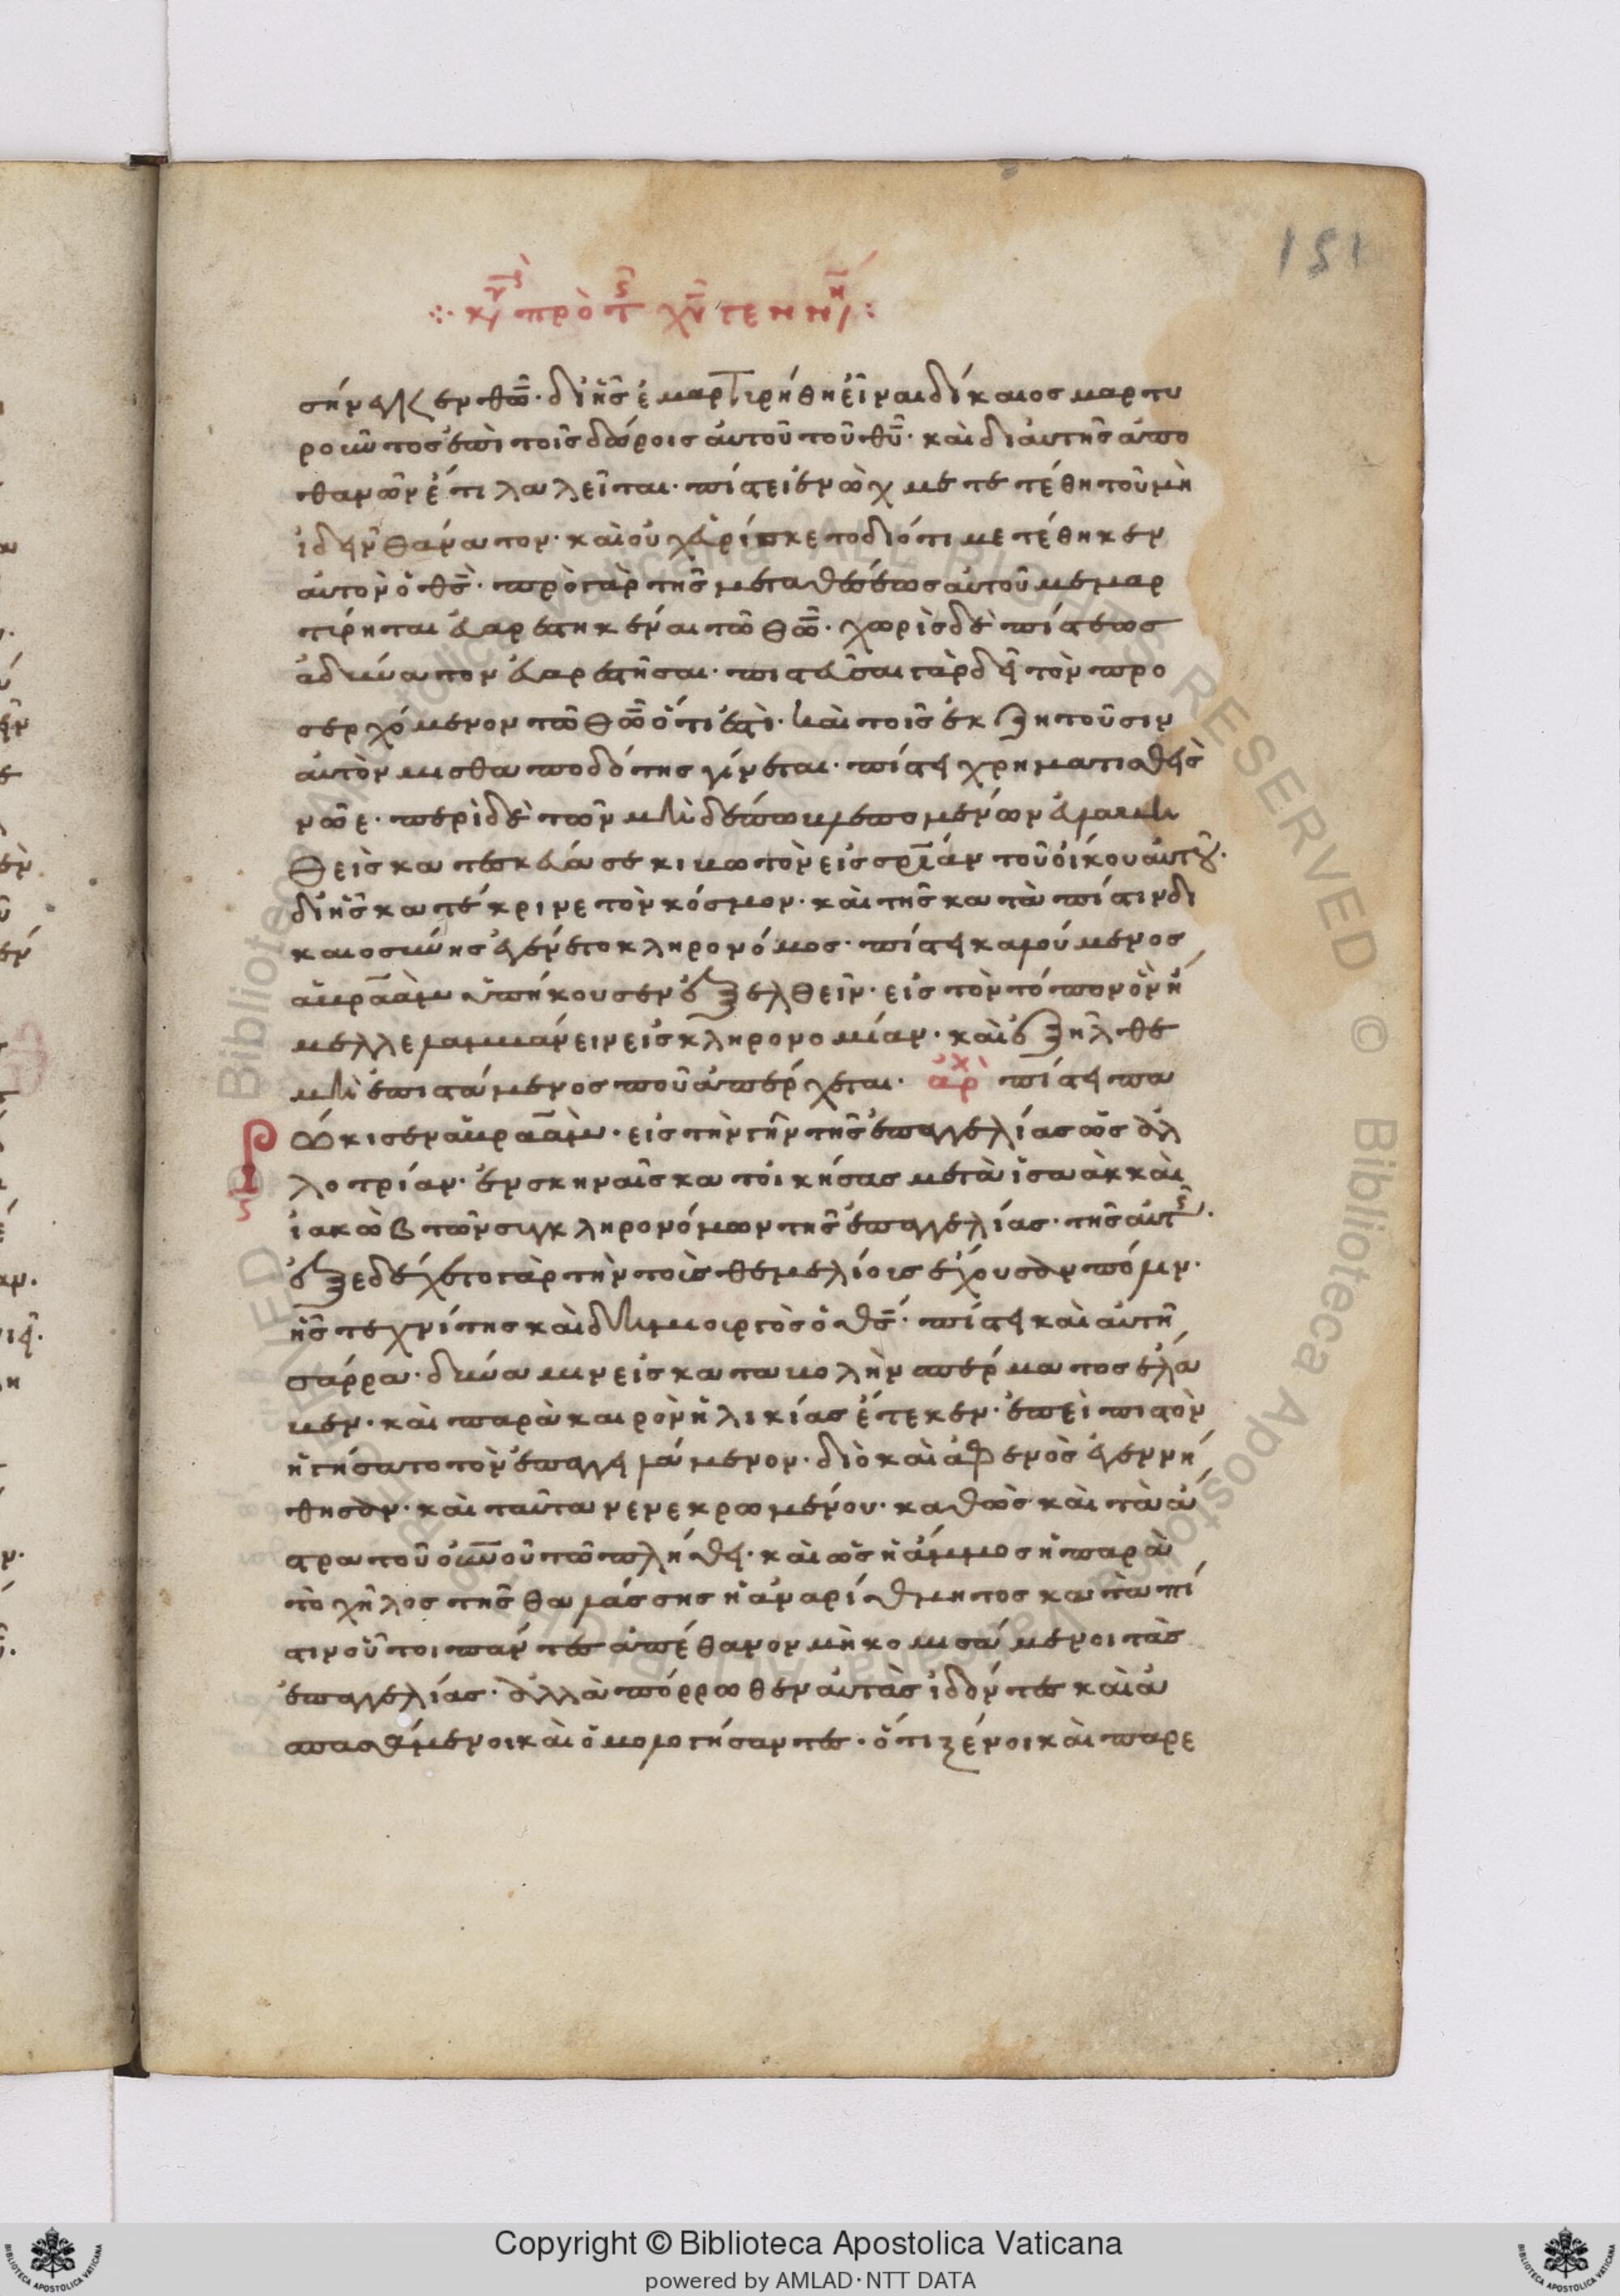 151
κυ πρὸ τ χυ γεννη
σήνεγκεν θῶ· δι ἧς ἐμαρτιρήθη εἶναι δίκαιος μαρτυ
ροῦντος ἐπὶ τοῖς δώροις αὐτοῦ τοῦ θυ· καὶ δι αὐτῆς ἀπο
θανῶν ἔτι λαλεῖται· πίστει ἐνὼχ μετετέθη τοῦ μὴ
ἰδεῖν θάνατον· καὶ οὐχ εὑρίσκετο διότι μετέθηκεν
αὐτὸν ὁ θς· πρὸ γὰρ τῆς μεταθέσεως αὐτοῦ μεμαρ
τίρηται εὐαρεστηκέναι τῶ θῶ· χωρὶς δὲ πίστεως
ἀδύνατον εὐαρεστῆσαι· πιστεῦσαι γὰρ δεῖ τὸν προ
σερχόμενον τῶ θῶ ὅτι ἐστὶ· καὶ τοῖς ἐκζητοῦσιν
αὐτὸν μισθαποδότης γίνεται· πίστει χρηματισθεὶς
νῶε· περὶ δὲ τῶν μηδέπω βλεπομένων εὐλαβη
θεὶς κατεσκεύασε κιβωτὸν εἰς σρίαν τοῦ οἴκου αὐτοῦ·
δι ἧς κατέκρινε τὸν κόσμον· καὶ τῆς κατὰ πίστιν δι
καιοσύνης ἐγένετο κληρονόμος· πίστει καλούμενος
ἀβραὰμ ὑπήκουσεν ἐξελθεῖν· εἰς τὸν τόπον ὃν ἤ
μελλε λαμβάνειν εἰς κληρονομίαν· καὶ ἐξῆλθε
μὴ ἐπιστάμενος ποῦ ἀπέρχεται· ἀρχ πίστει πα
ρώκισεν ἀβραὰμ· εἰς τὴν γῆν τῆς ἐπαγγελίας ὡς ἀλ
λοτρίαν· ἐν σκηναῖς κατοικήσας μετὰ ἰσαὰκ καὶ
ἰακὼβ τῶν συγκληρονόμων τῆς ἐπαγγελίας· τῆς αὐτῆς·
ἐξεδέχετο γὰρ τὴν τοὶς θεμελίοις ἔχουσαν πόλιν·
ἧς τεχνίτης καὶ δημιουργὸς ὁ θς· πίστει καὶ αὐτὴ
σάρρα· δύναμιν εἰς καταβολὴν σπέρματος ἔλα
βεν· καὶ παρὰ καιρὸν ἡλικίας ἔτεκεν· ἐπεὶ πιστὸν
ἡγήσατο τὸν ἐπαγγειλάμενον· διὸ καὶ ἀφ ενὸς ἐγεννή
θησαν· καὶ ταῦτα νενεκρωμένου· καθὼς καὶ τὰ ἄ
στρα τοῦ οὐνοῦ τῶ πλήθει· καὶ ὡς ἡ ἄμμος ἡ παρὰ
τὸ χῆλος τῆς θαλάσσης ἡ ἀναρίθμητος κατὰ πί
στιν οὗτοι πάντες ἀπέθανον μὴ κομισάμενοι τὰς
ἐπαγγελίας· ἀλλὰ πόρρωθεν αὐτὰς ἰδόντες καὶ ἀ
σπασάμενοι καὶ ὁμολογήσαντες· ὅτι ξένοι καὶ παρε
Copyright © Biblioteca Apostolica Vaticana
powered by AMLAD·NTT DATA